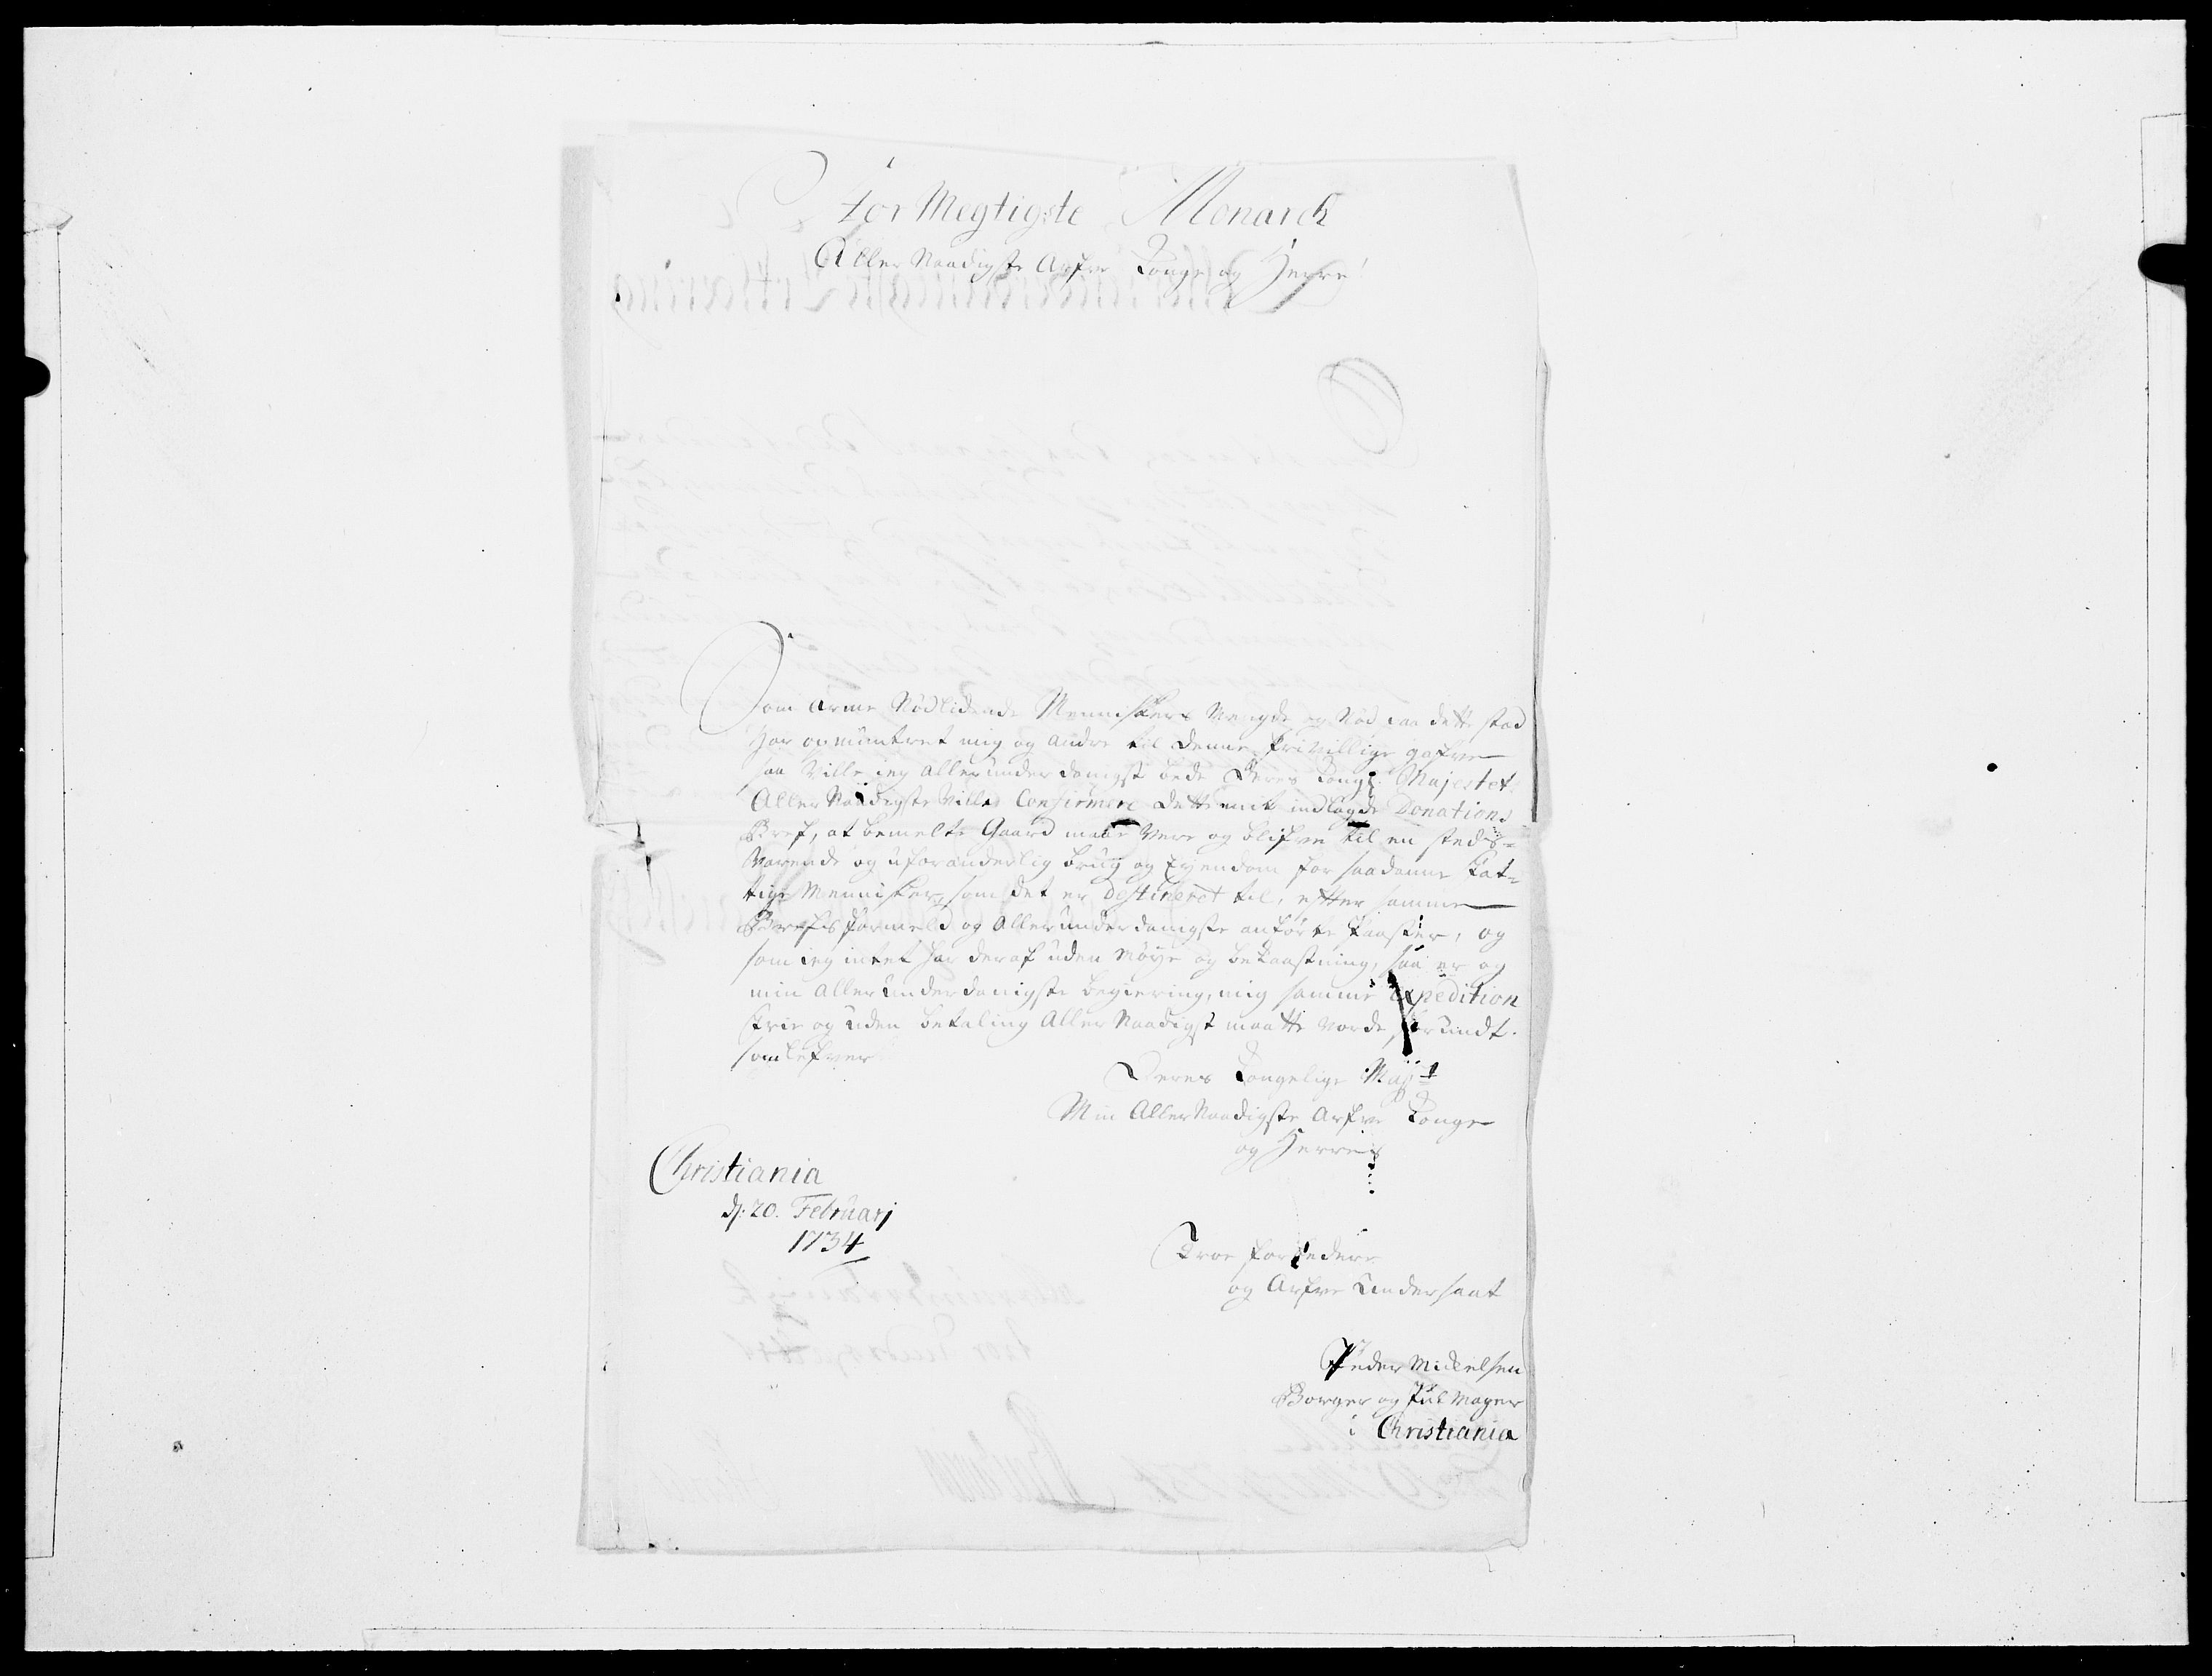 Formegtigste Monarch
Aller Naadigste Arfve Konge og Herre!
Som arme Nødlidende Menniskers Mengde og Nød paa dette stad
har opmuntret mig og andre til denne frivillige gafve
saa ville ieg allerunderdanigst bede Deres Kongl: Majestet
Aller Naadigste villed Confirmere dette mit indlagde Donations
Bref, at bemelte Gaard maae vere og blifve til en steds=
varende og uforanderlig brug og Eyendom for saadanne Fat=
tige Mennisker, som det er destineret til, efter samme
Brefs formeld og Allerunderdanigste anførte Poster, og
som ieg intet har deraf uden møye og bekaastning, saa er og
min allerunderdanigste begiering, mig samme Expedition
frie og uden betaling Aller Naadigst maatte vorde forundt.
som lefver
Deres Kongelige Mayt:
Min Aller Naadigste Arfve Konge
og Herres
Christiania
d: 20. Februarj
1734
Troe forbedere
og Arfve Undersaat
Peder Mickelsen
Borger og Hulmager
i Christiania